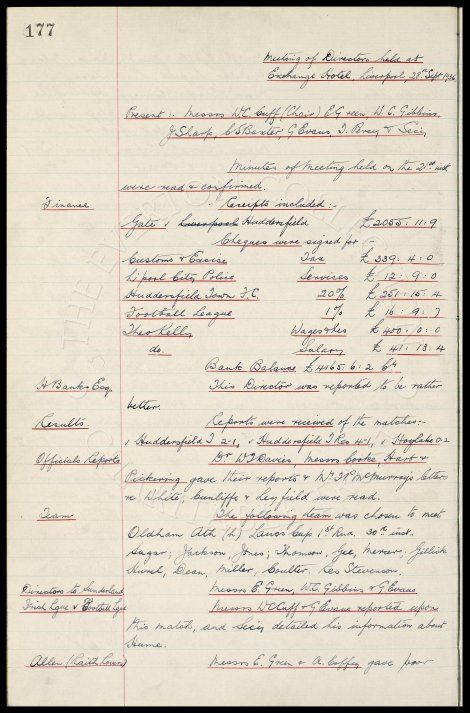 177
Meeting of Directors held at
Exchange Hotel, Liverpool, 28th Sept 1936
Present :- Messrs W.C. Cuff (Chair) E Green, W.C. Gibbins,
J Sharp, C S Baxter, G Evans, T. Percy & Secy.
Minutes of Meeting held on the 21st inst
were read & confirmed.
Finance Receipts included :-
Gate v Liverpool Huddersfield £2055 : 11 : 9
Cheques were signed for :-
Customs & Excise Tax £ 339 : 4 : 0
L'pool City Police Services £ 12 : 9 : 0
Huddersfield Town F.C. 20% £ 251 : 15 : 4
Football League 1% £ 16 : 9 : 7
Theo Kelly Wages &es £ 400 : 0 : 0
do. Salary £ 41 : 13 : 4
Bank Balance £4165 : 6 : 2 Cr
H Banks Esq. This Director was reported to be rather
better.
Results Reports were received of the matches :-
v Huddersfield T 2-1, v Huddersfield T Res 4-1, v Hoylake 0-2
Officials Reports Dr W.T. Davies, Messrs Cooke, Hart &
Pickering gave their reports & Mr McMurray's letters
re White, Cunliffe & Leyfield were read.
Team The following team was chosen to meet
Oldham Ath (H) Lancs Cup 1st Rnd, 30th inst.
Sagar; Jackson, Jones; Thomson, Gee, Mercer; Gillick
Hurel, Dean, Miller, Coulter. Res Stevenson.
Directors to Sunderland Messrs E. Green, W.C. Gibbins & G Evans
Irish Lge v Football Lge Messrs W C Cuff & G Evans reported upon
this match, and Secy detailed his information about
Hume.
Allen (Raith Rovers) Messrs E. Green & A. Coffey gave poor